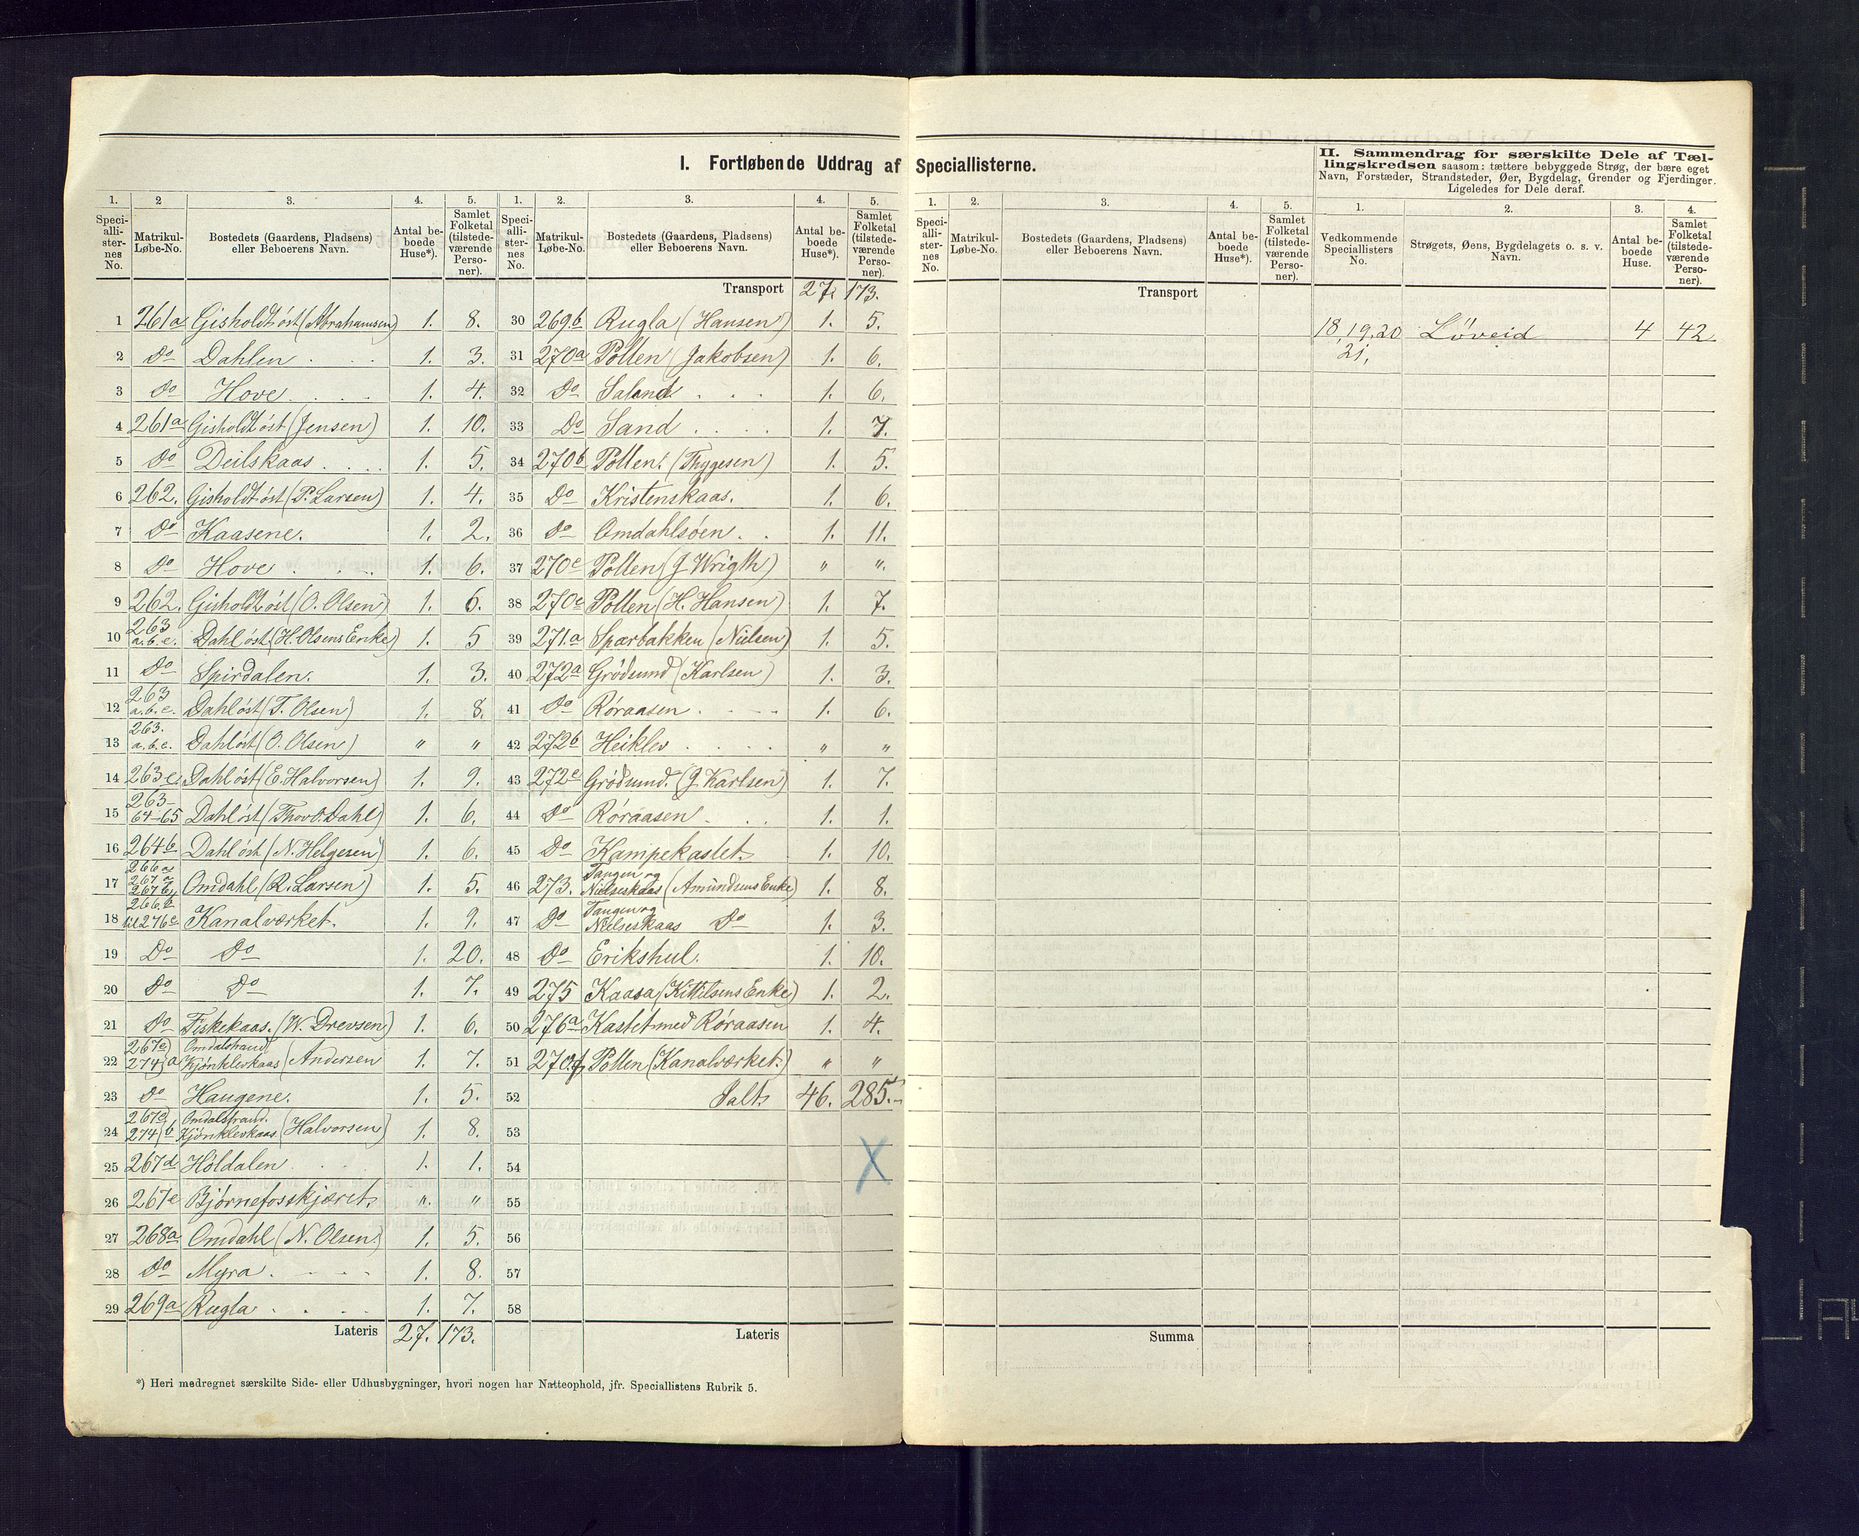 I. Fortløbende Uddrag af Speciallisterne.
II. Sammendrag for særskilte Dele af Tællingskredsen saasom: tættere bebyggede Strøg, der bære eget
Navn, Forstæder, Strandsteder, Øer, Bygdelag, Grender og Fjerdinger.
Ligeledes for Dele deraf.
1. 2 3. 4. 5.
Speciallisternes No. Matrikul-Løbe-No. Bostedets (Gaardens, Pladsens) eller Beboerens Navn. Antal beboede Huse*). Samlet Folketal (tilstedeværende Personer).
1 261a Gisholdt øst (Abrahamsen) 1. 8.
2 Do Dahlen 1. 3.
3 Do Hove 1. 4.
4 261a Gisholdt øst (Jensen) 1. 10.
5 Do Deilskaas 1. 5.
6 262. Gisholdt øst (P. Larsen) 1. 4.
7 Do Kaasene. 1. 2.
8 Do Hove 1. 6.
9 262. Gisholdt øst (O. Olsen) 1. 6.
10 263 a.b.c. Dahl øst (H. Olsens Enke) 1. 5
11 Do Spirdalen. 1. 3.
12 263 a.b.c. Dahl øst (T. Olsen) 1. 8.
13 263. a.b.c. Dahl øst (O. Olsen) " "
14 263c Dahl øst (E. Halvorsen) 1. 9.
15 263-64-65 Dahl øst (Thov O. Dahl) 1. 6.
16 264b Dahl øst (N. Helgesen) 1. 6.
17 266a 267a 267b Omdahl (R. Larsen) 1. 5.
18 266b til 276c Kanalværket. 1. 9.
19 Do Do 1. 20.
20 Do Do 1. 7.
21 Do Fiskekaas. (W. Drevsen) 1. 6.
22 267c) 274) a Omdalstrand. Kjønklevkaas (Andersen 1. 7.
23 Do Haugene. 1. 5.
24 267c) 274) b Omdalstrand. Kjønklevkaas (Halvorsen) 1. 8.
25 267d Holdalen 1. 1.
26 267e Bjørnefosskjæret. ". "
27 268a Omdahl (N. Olsen) 1. 5.
28 Do Myra 1. 8.
29 269a Rugla 1. 7.
Lateris 27. 173.
1. 2. 3. 4. 5.
Speciallisternes No. Matrikul-Løbe-No. Bostedets (Gaardens, Pladsens) eller Beboerens Navn. Antal beboede Huse*). Samlet Folketal (tilstedeværende Personer).
Transport 27. 173.
30 269b Rugla (Hansen) 1. 5.
31 270a Pollen (Jakobsen) 1. 6.
32 Do Saland 1. 6.
33 Do Sand 1. 7.
34 270b Pollen. (Thygesen) 1. 5.
35 Do Kristenskaas. 1. 6.
36 Do Omdahlsøen 1. 11.
37 270c Pollen (J Wrigth) " ".
38 270e Pollen (H. Hansen) 1. 7.
39 271.a Sparbakken (Nielsen) 1. 5.
40 272a Grødsund (Karlsen) 1. 3.
41 Do Røraasen 1. 6.
42 272b Heiklev " "
43 272c Grødsund. (J. Karlsen) 1. 7.
44 Do Røraasen 1. 1.
45 Do Kampekastet. 1. 10.
46 273. Tangen og Nielseskaas (Amundsens Enke) 1. 8.
47 Do Tangen og Nielseskaas Do 1. 3.
48 Do Erikshul. 1. 10.
49 275 Kaasa (Kittilsens Enke) 1. 2.
50 276a Kastet med Røraasen 1. 4.
51 270f Pollen (Kanalværket.) " "
52 Ialt. 46. 285.
53
54
55
56
57
58
Lateris
*) Heri medregnet særskilte Side- eller Udhusbygninger, hvori nogen har Natteophold, jfr. Speciallistens Rubrik 5.
1. 2. 3. 4. 5.
Speciallisternes No. Matrikul-Løbe-No. Bostedets (Gaardens, Pladsens) eller Beboerens Navn. Antal beboede Huse*). Samlet Folketal (tilstedeværende Personer).
Transport
Summa
1. 2. 3. 4.
Vedkommende Speciallisters No. Strøgets, Øens, Bygdelagets o. s. v. Navn. Antal beboede Huse. Samlet Folketal (tilstedeværende Personer).
18, 19, 20 Løveid 4 42.
21,